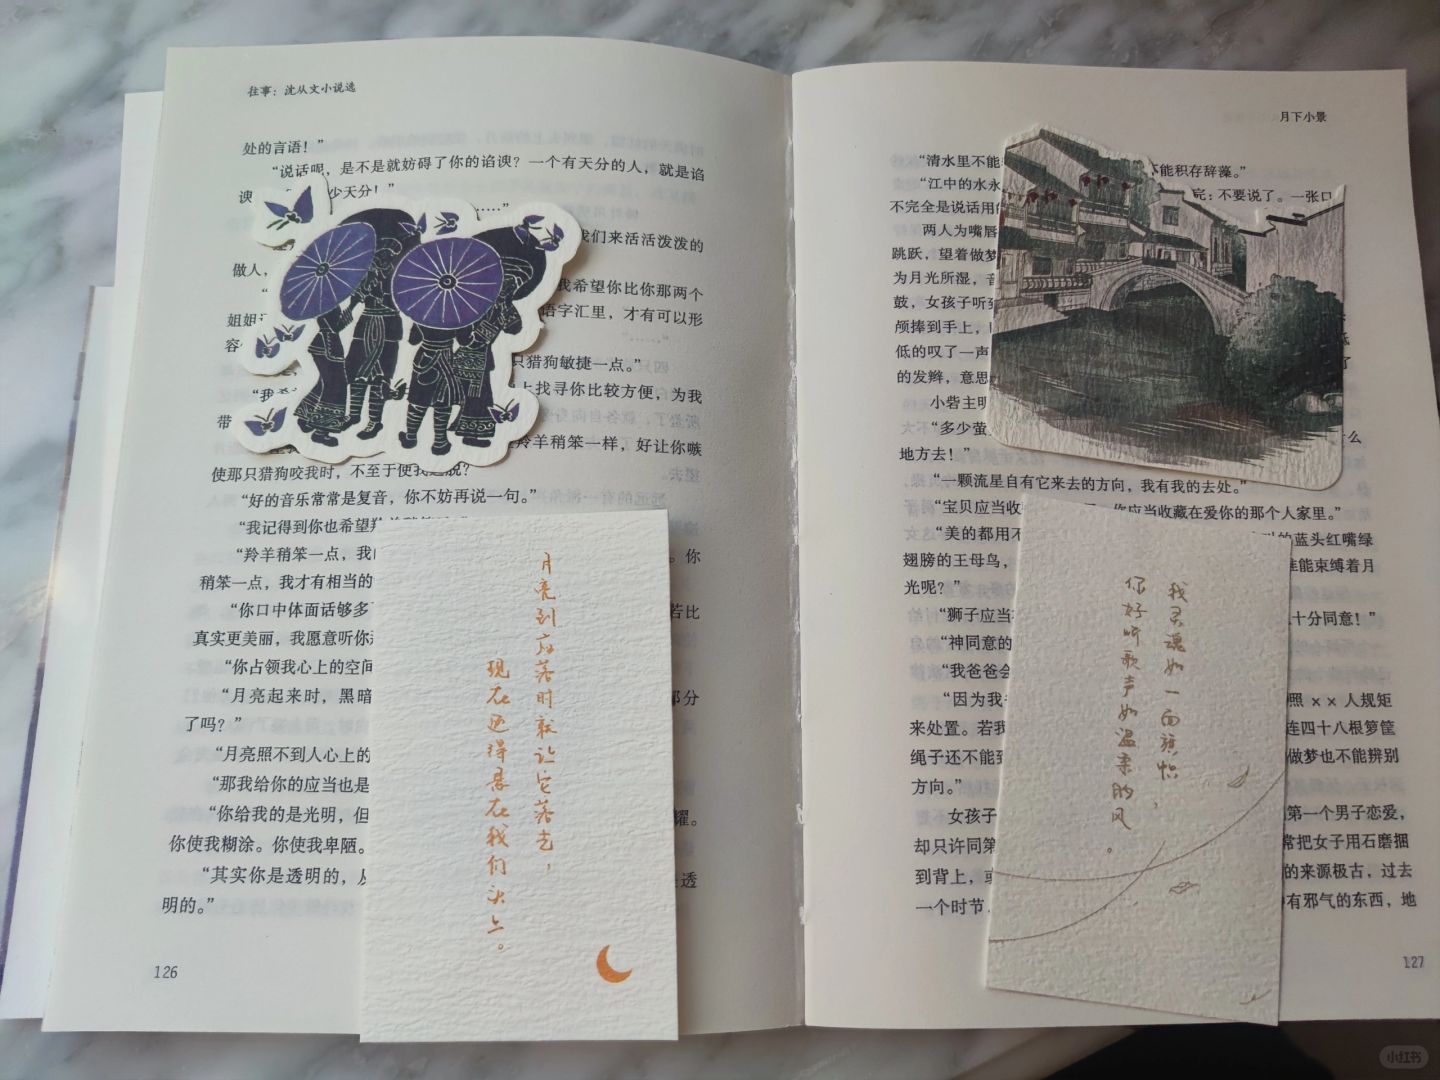 往事：沈从文小说选
处的言语！”
“说话呢，是不是就妨碍了你的谄谀？一个有天分的人，就是谄
谀
少天分！”
……”
我们来活活泼泼的
做人，
我希望你比你那两个
姐姐
语字汇里，才有可以形
容
只猎狗敏捷一点。”
“我希
上找寻你比较方便，为我
带
羚羊稍笨一样，好让你嗾
使那只猎狗咬我时，不至于使我逃脱？
“好的音乐常常是复音，你不妨再说一句。”
“我记得到你也希望
“羚羊稍笨一点，我
。你
稍笨一点，我才有相当的
“你口中体面话够多
若比
真实更美丽，我愿意听你
“你占领我心上的空间
“月亮起来时，黑暗
部分
了吗？”
“月亮照不到人心上的
“那我给你的应当也是
“你给我的是光明，但
耀。
你使我糊涂。你使我卑陋。
“其实你是透明的，从
是透
明的。”
126
月亮到应落时就让它落去，
现在还得悬在我们头上。
月下小景
“清水里不能
不能积存辞藻。”
“江中的水永
完：不要说了。一张口
不完全是说话用的
两人为嘴唇
跳跃，望着做梦
为月光所湿，音
鼓，女孩子听到
颅捧到手上，
低
低的叹了一声
了
的发辫，意思
小砦主
“多少萤
什么
地方去！”
“一颗流星自有它来去的方向，我有我的去处。”
“宝贝应当收
你应当收藏在爱你的那个人家里。”
“美的都用不
的蓝头红嘴绿
翅膀的王母鸟，
谁能束缚着月
光呢？”
“狮子应当
十分同意！”
“神同意的
“我爸爸会
“因为我
照××人规矩
来处置。若我
连四十八根箩筐
绳子还不能到
做梦也不能辨别
方向。”
女孩子
第一个男子恋爱，
却只许同第
常把女子用石磨捆
到背上，或
的来源极古，过去
一个时节，
有邪气的东西，地
127
我灵魂如一面旗帜，
你好听歌声如温柔的风。
小红书